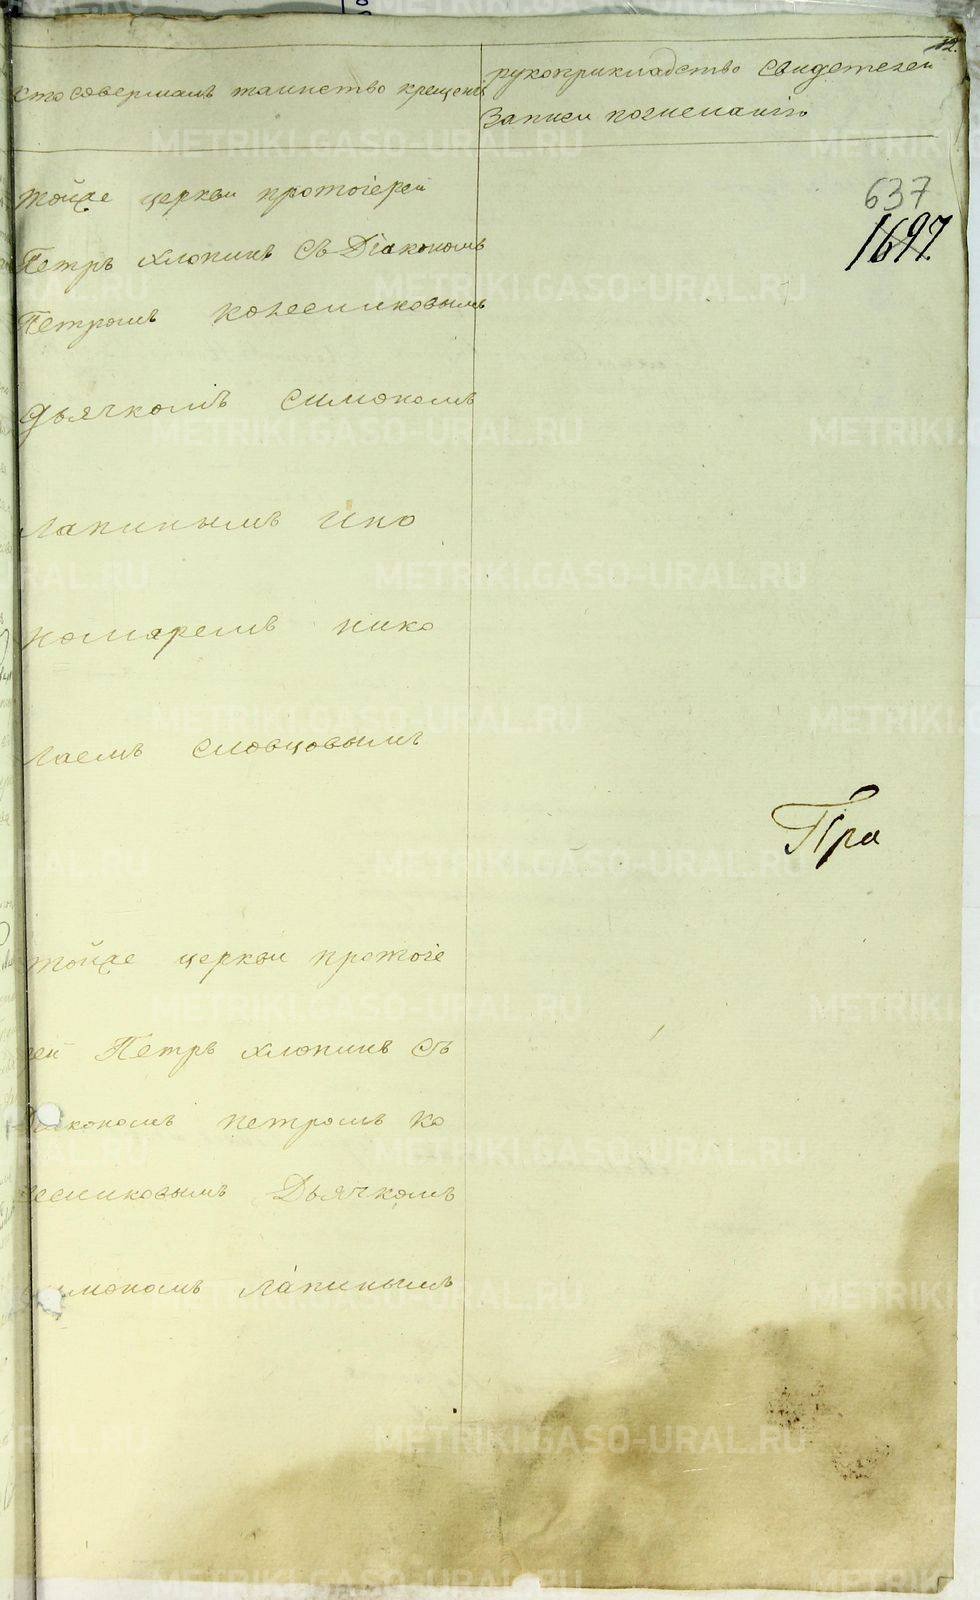 12.
кто совершалъ таинство крещенія
рукоприкладство свидетелей
записи по желанію
тойже церкви протоіерей
637
Петръ Хлопинъ съ Діакономъ
1697.
Петромъ колесниковымъ
дьячкомъ симономъ
лапинымъ ипо
номаремъ нико
лаемъ словцовымъ
Пра
тойже церкви протоіе
рей Петръ хлопинъ съ
Діакономъ петромъ ко
лесниковымъ Дьячкомъ
симономъ лапинымъ